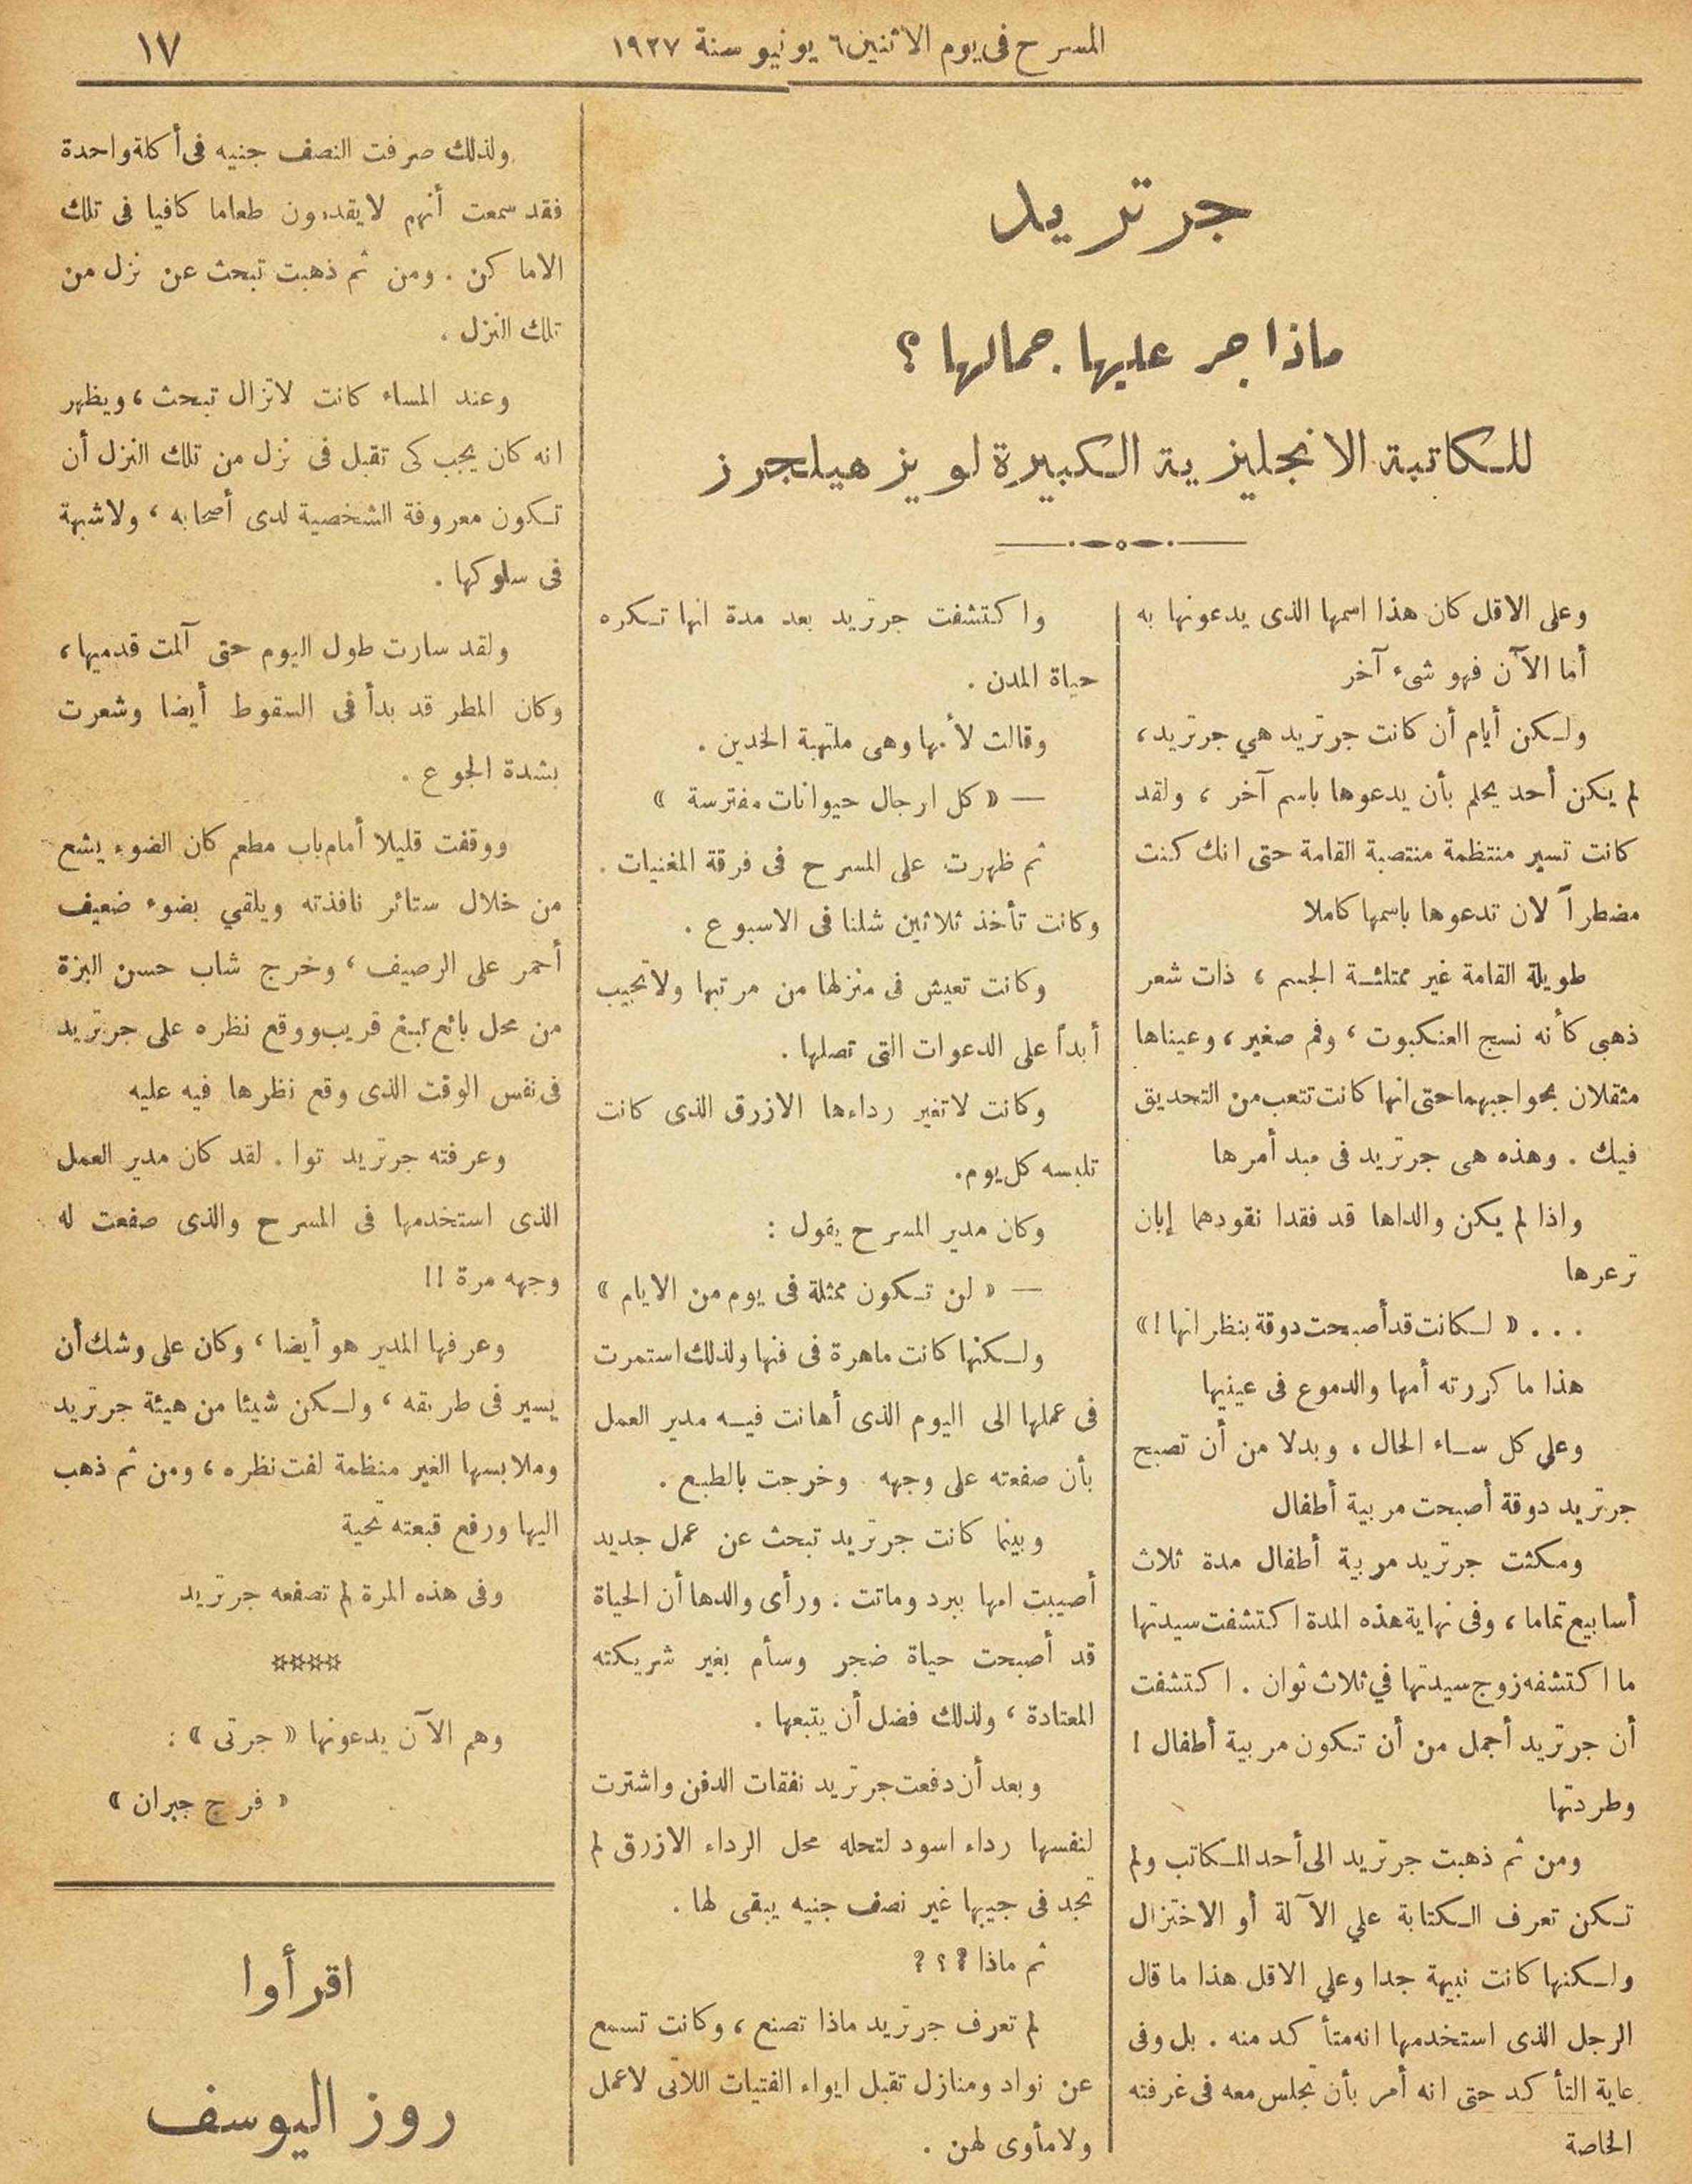 المسرح فى يوم الاثنين ٦ يونيو سنة ١٩٢٧
١٧
جرتريد
ماذا جر عليها جمالها ؟
للكاتبة الانجليزية الكبيرة لويز هيلجرز
وعلى الاقل كان هذا اسمها الذى يدعونها به
أما الآن فهو شىء آخر
ولكن أيام أن كانت جرتريد هي جرتريد،
لم يكن أحد يحلم بأن يدعوها باسم آخر ، ولقد
كانت تسير منتظمة منتصبة القامة حتى انك كنت
مضطراً لان تدعوها باسمها كاملا
طويلة القامة غير ممتلئة الجسم ، ذات شعر
ذهبى كأنه نسج العنكبوت ، وفم صغير ، وعيناها
مثقلان بحواجبهما حتى انها كانت تتعب من التحديق
فيك . وهذه هى جرتريد فى مبد أمرها
واذا لم يكن والداها قد فقدا نقودهما إبان
ترعرها
... « لكانت قد أصبحت دوقة بنظراتها ! »
هذا ما كررته أمها والدموع فى عينيها
وعلي كل ساء الحال ، وبدلا من أن تصبح
جرتريد دوقة أصبحت مربية أطفال
ومكثت جرتريد مربية أطفال مدة ثلاث
أسابيع تماما ، وفى نهاية هذه المدة اكتشفت سيدتها
ما اكتشفه زوج سيدتها في ثلاث ثوان . اكتشفت
أن جرتريد أجمل من أن تكون مربية أطفال !
وطردتها
ومن ثم ذهبت جرتريد الى أحد المكاتب ولم
تكن تعرف الكتابة علي الآلة أو الاختزال
ولكنها كانت نبيهة جدا وعلي الاقل هذا ما قال
الرجل الذى استخدمها انه متأكد منه . بل وفى
غاية التأكد حتى انه أمر بأن تجلس معه فى غرفته
الخاصة
واكتشفت جرتريد بعد مدة انها تكره
حياة المدن .
وقالت لأمها وهى ملتهبة الخدين .
— « كل ارجال حيوانات مفترسة »
ثم ظهرت على المسرح فى فرقة المغنيات .
وكانت تأخذ ثلاثين شلنا فى الاسبوع .
وكانت تعيش فى منزلها من مرتبها ولا تجيب
أبداً على الدعوات التى تصلها .
وكانت لا تغير رداءها الازرق الذى كانت
تلبسه كل يوم.
وكان مدير المسرح يقول :
— « لن تكون ممثلة فى يوم من الايام »
ولكنها كانت ماهرة فى فنها ولذلك استمرت
فى عملها الى اليوم الذى أهانت فيه مدير العمل
بأن صفعته على وجهه . وخرجت بالطبع .
وبينما كانت جرتريد تبحث عن عمل جديد
أصيبت امها ببرد وماتت . ورأى والدها أن الحياة
قد أصبحت حياة ضجر وسأم بغير شريكته
المعتادة ، ولذلك فضل أن يتبعها .
وبعد أن دفعت جرتريد نفقات الدفن واشترت
لنفسها رداء اسود لتحله محل الرداء الازرق لم
تجد فى جيبها غير نصف جنيه يبقى لها .
ثم ماذا ؟ ؟ ؟
لم تعرف جرتريد ماذا تصنع ، وكانت تسمع
عن نواد ومنازل تقبل ايواء الفتيات اللاتى لا عمل
ولا مأوى لهن .
ولذلك صرفت النصف جنيه فى أكلة واحدة
فقد سمعت أنهم لا يقدمون طعاما كافيا فى تلك
الاماكن . ومن ثم ذهبت تبحث عن نزل من
تلك النزل .
وعند المساء كانت لا تزال تبحث ، ويظهر
انه كان يجب كى تقبل فى نزل من تلك النزل أن
تكون معروفة الشخصية لدى أصحابه ، ولا شبهة
فى سلوكها .
ولقد سارت طول اليوم حتى آلمت قدميها ،
وكان المطر قد بدأ فى السقوط أيضا وشعرت
بشدة الجوع .
ووقفت قليلا أمام باب مطعم كان الضوء يشع
من خلال ستائر نافذته ويلقي بضوء ضعيف
أحمر على الرصيف ، وخرج شاب حسن البزة
من محل بائع تبغ قريب ووقع نظره على جرتريد
فى نفس الوقت الذى وقع نظرها فيه عليه
وعرفته جرتريد توا . لقد كان مدير العمل
الذى استخدمها فى المسرح والذى صفعت له
وجهه مرة !!
وعرفها المدير هو أيضا ، وكان على وشك أن
يسير فى طريقه ، ولكن شيئا من هيئة جرتريد
وملابسها الغير منظمة لفت نظره ، ومن ثم ذهب
اليها ورفع قبعته تحية
وفى هذه المرة لم تصفعه جرتريد
☆☆☆☆
وهم الآن يدعونها « جرتى » :
« فرج جبران »
اقرأوا
روز اليوسف